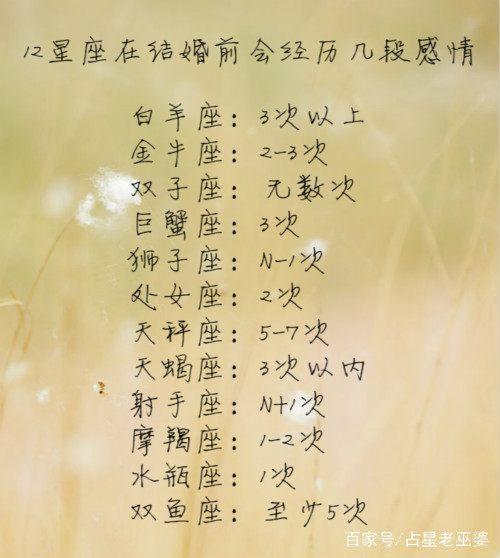 12星座在结婚前会经历几段感情
白羊座：3次以上
金牛座：2-3次
双子座：无数次
巨蟹座：3次
狮子座：N-1次
处女座：2次
天秤座：5-7次
天蝎座：3次以内
射手座：N+1次
摩羯座：1-2次
水瓶座：1次
双鱼座：至少5次
百家号/占星老巫婆